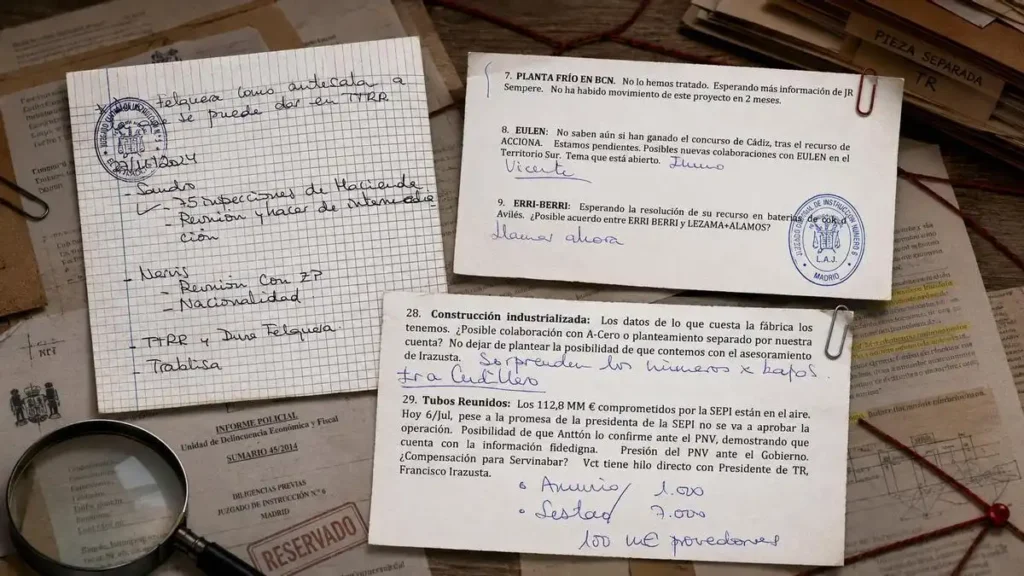 Felguera como antesala a
se puede dar en TTRR
Sandro
75 inspecciones de Hacienda
- Reunión y hacer de intermedia
ción
- Neris
- Reunión con ZP
- Nacionalidad
- TTRR y Duro Felguera
- Trablisa
7. PLANTA FRÍO EN BCN. No lo hemos tratado. Esperando más información de JR
Sempere. No ha habido movimiento de este proyecto en 2 meses.
8. EULEN: No saben aún si han ganado el concurso de Cádiz, tras el recurso de
ACCIONA. Estamos pendientes. Posibles nuevas colaboraciones con EULEN en el
Territorio Sur. Tema que está abierto.
Vicente
9. ERRI-BERRI: Esperando la resolución de su recurso en baterías de cok d
Avilés. ¿Posible acuerdo entre ERRI BERRI y LEZAMA+ALAMOS?
Llamar ahora
JUZGADO CENTRAL DE INSTRUCCIÓN NÚMERO 6
L.A.J.
MADRID
28. Construcción industrializada: Los datos de lo que cuesta la fábrica los
tenemos. ¿Posible colaboración con A-Cero o planteamiento separado por nuestra
cuenta? No dejar de plantear la posibilidad de que contemos con el asesoramiento
de Irazusta. Sorprenden los números x bajos.
29. Tubos Reunidos: Los 112,8 MM € comprometidos por la SEPI están en el aire.
Hoy 6/Jul, pese a la promesa de la presidenta de la SEPI no se va a aprobar la
operación. Posibilidad de que Anttón lo confirme ante el PNV, demostrando que
cuenta con la información fidedigna. Presión del PNV ante el Gobierno.
¿Compensación para Servinabar? Vct tiene hilo directo con Presidente de TR,
Francisco Irazusta.
• Amurrio/ 1.000
• Sestao 7.000
100 M€ proveedores
PIEZA SEPARADA
TR
INFORME POLICIAL
Unidad de Delincuencia Económica y Fiscal
SUMARIO 45/2014
DILIGENCIAS PREVIAS
JUZGADO DE INSTRUCCIÓN N.º 6
MADRID
RESERVADO